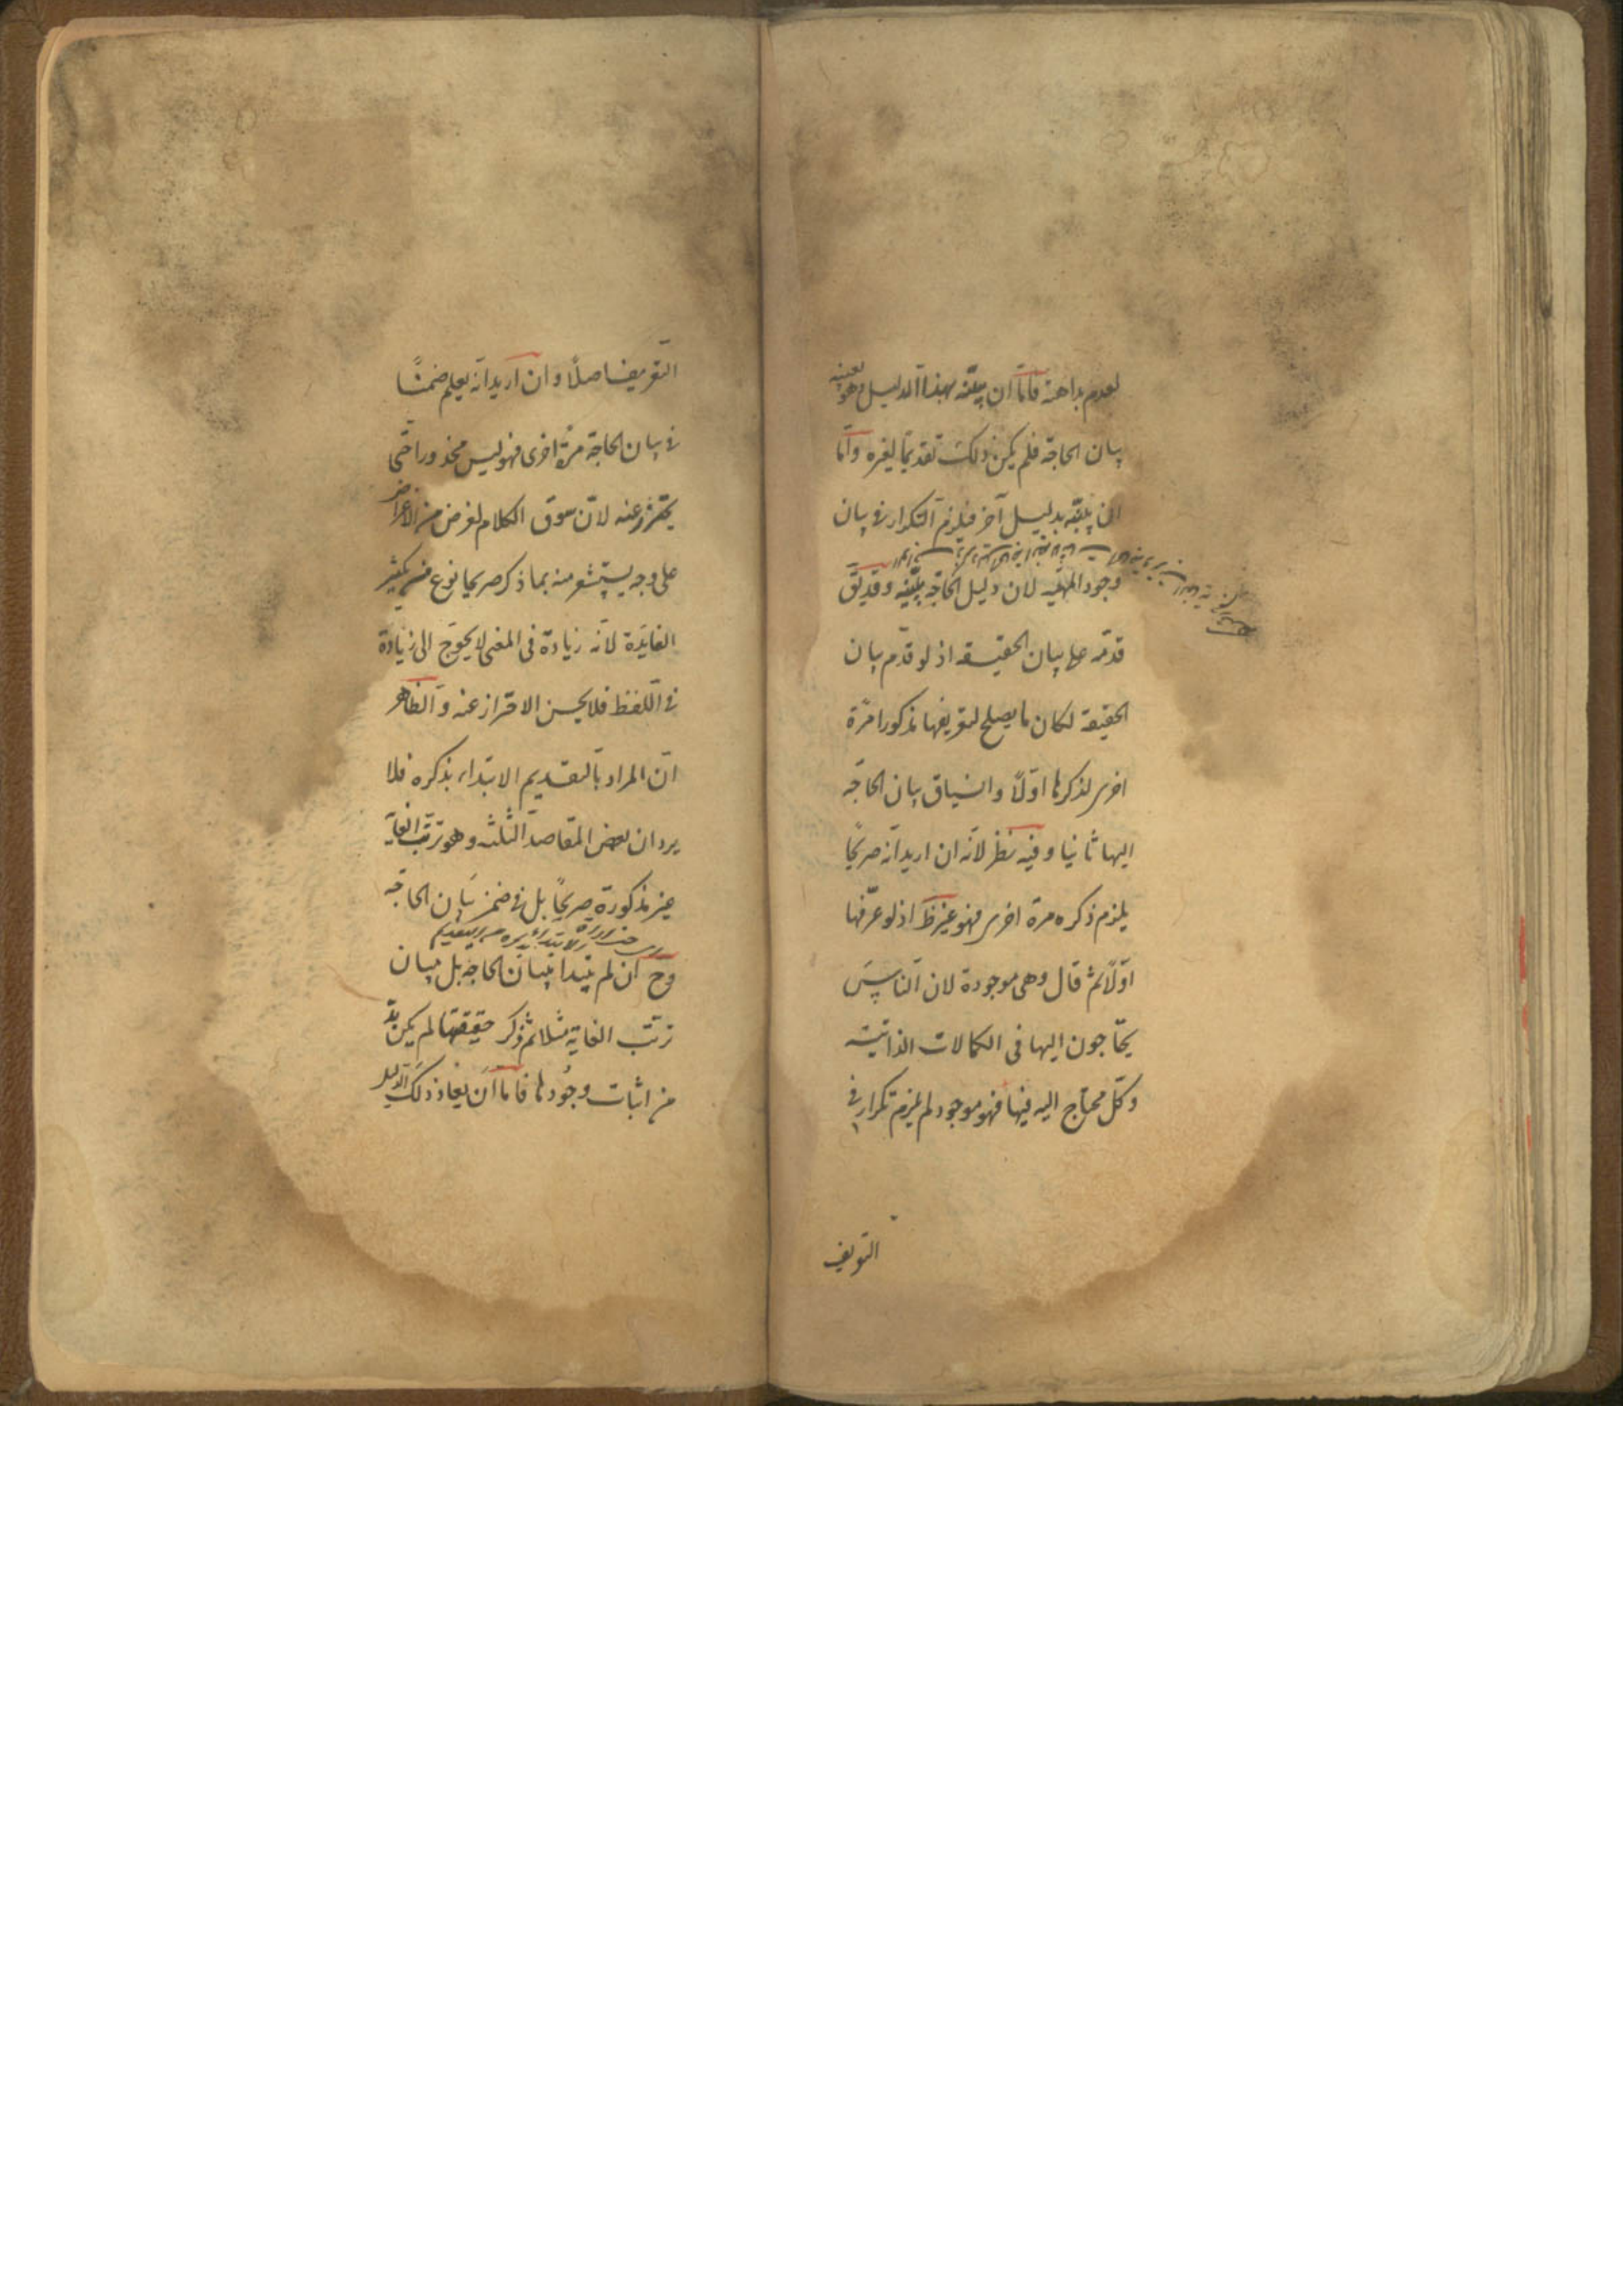 لعدم بداهته فاما ان يبيّنه بهذا الدليل وهو بعينه
بيان الحاجة فلم يكن ذلك تقديما لغيره واما
ان يبيّنه بدليل آخر فيلزم التكرار في بيان
وجود المهيّة لان دليل الحاجة يبيّنه وقد يق
قدّمه على بيان الحقيقة اذ لو قدّم بيان
الحقيقة لكان ما يصلح لتعريفها مذكورا مرّة
اخرى لذكرها اوّلاً وانسياق بيان الحاجة
اليها ثانيا وفيه نظر لانّه ان اريد انّه صريحًا
يلزم ذكره مرة اخرى فهو غير ظَ اذ لو عرّفها
اوّلاً ثم قال وهى موجودة لان الناس
يحتاجون اليها فى الكمالات الذاتية
وكلّ محتاج اليه فيها فهو موجود لم يلزم تكرار في
التعريف
التّعريف اصلاً وان اريد انّه يعلم ضمنًا
في بيان الحاجة مرّة اخرى فهو ليس محذورا حتّى
يحترز عنه لانّ سوق الكلام لغرض من الاغراض
على وجه يستشعر منه بما ذكر صريحا نوع من تكثير
الفايدة لانّه زيادة فى المعنى لا يحوج الى زيادة
في اللّفظ فلا يحسن الاحتراز عنه والظاهر
انّ المراد بالتقديم الابتداء بذكره فلا
يرد ان بعض المقاصد الثلثة وهو ترتّب الغاية
غير مذكورة صريحًا بل في ضمن بيان الحاجة
وح ان لم يبتدا ببيان الحاجة بل ببيان
ترتّب الغاية مثلا ثم ذكر حقيقتها لم يكن بدّ
من اثبات وجودها فاما ان يعاد ذلك الدليل